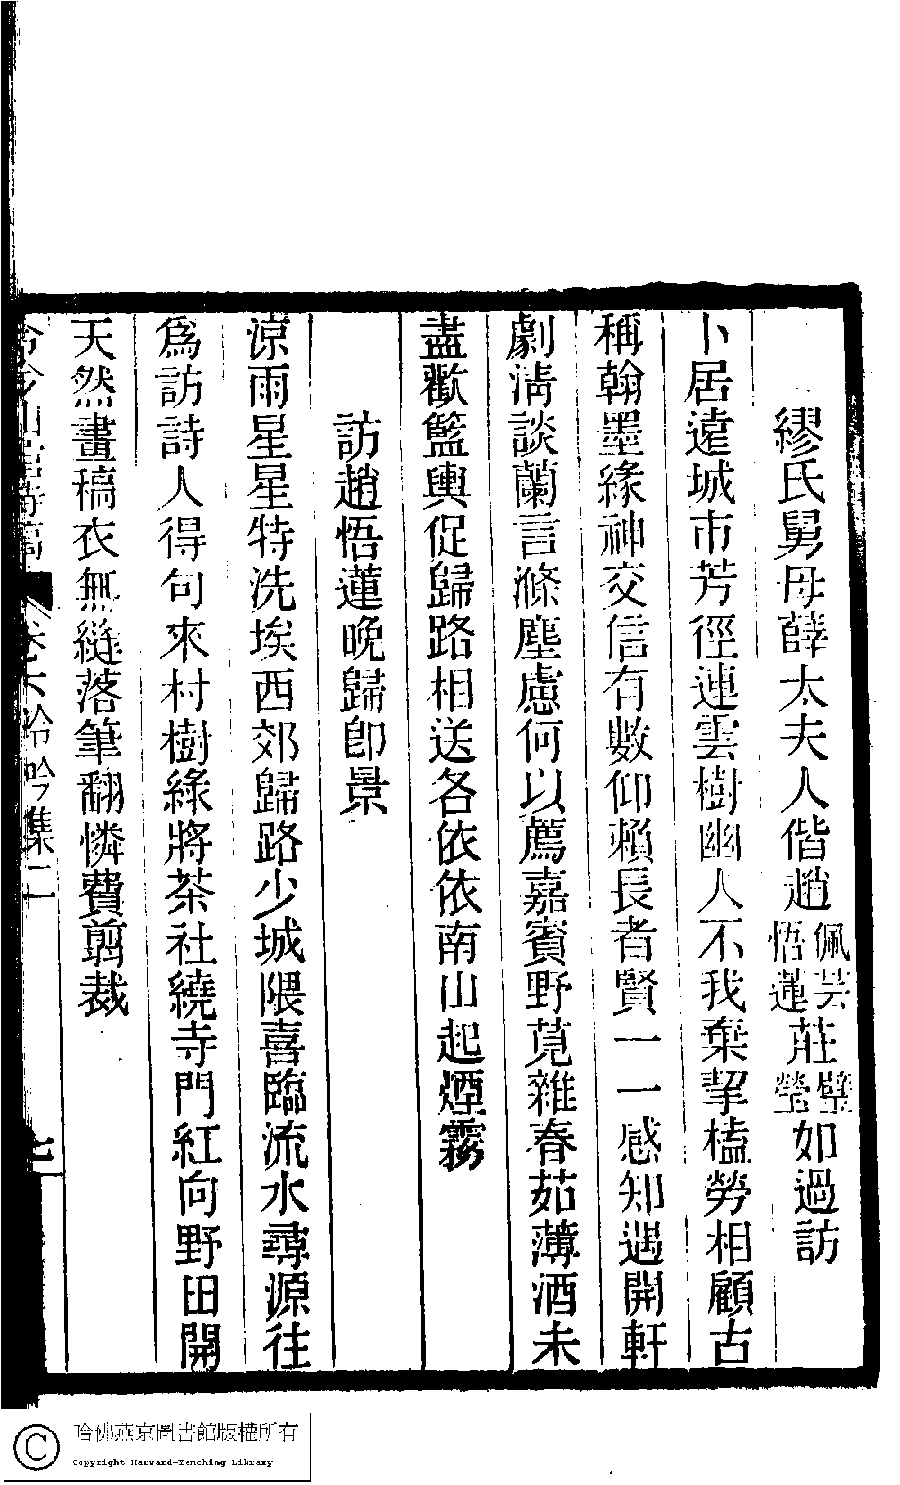 繆氏舅母薛太夫人偕趙佩芸悟蓮莊璧瑩如過訪
卜居遠城市芳徑連雲樹幽人不我棄挈榼勞相顧古
稱翰墨緣神交信有數仰賴長者賢一一感知遇開軒
劇清談蘭言滌塵慮何以薦嘉賓野蒐雜春茹薄酒未
盡歡籃輿促歸路相送各依依南山起煙霧
訪趙悟蓮晚歸卽景
涼雨星星特洗埃西郊歸路少城隈喜臨流水尋源往
爲訪詩人得句來村樹綠將茶社繞寺門紅向野田開
天然畫稿衣無縫落筆翻憐費翦裁
卷六冷吟集二
七
哈佛燕京圖書館版權所有
Copyright Harvard-Yenching Library